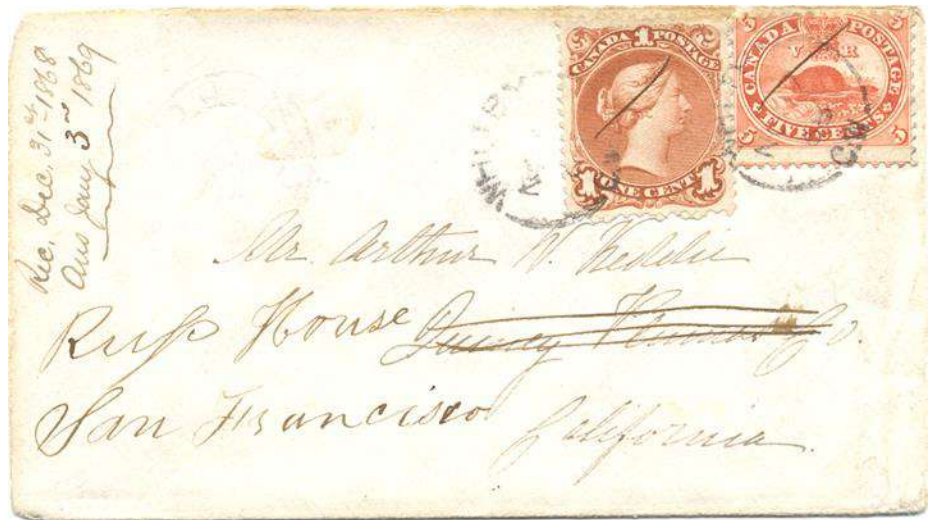 Rec. Dec. 31st 1868
Ans Jany 3rd 1869
CANADA POSTAGE
1
1 ONE CENT 1
5 CANADA POSTAGE 5
V R
5 FIVE CENTS 5
WHITBY
C.W.
Mr. Arthur W. Keddie
Russ House Quincy Plumas Co.
San Francisco California.